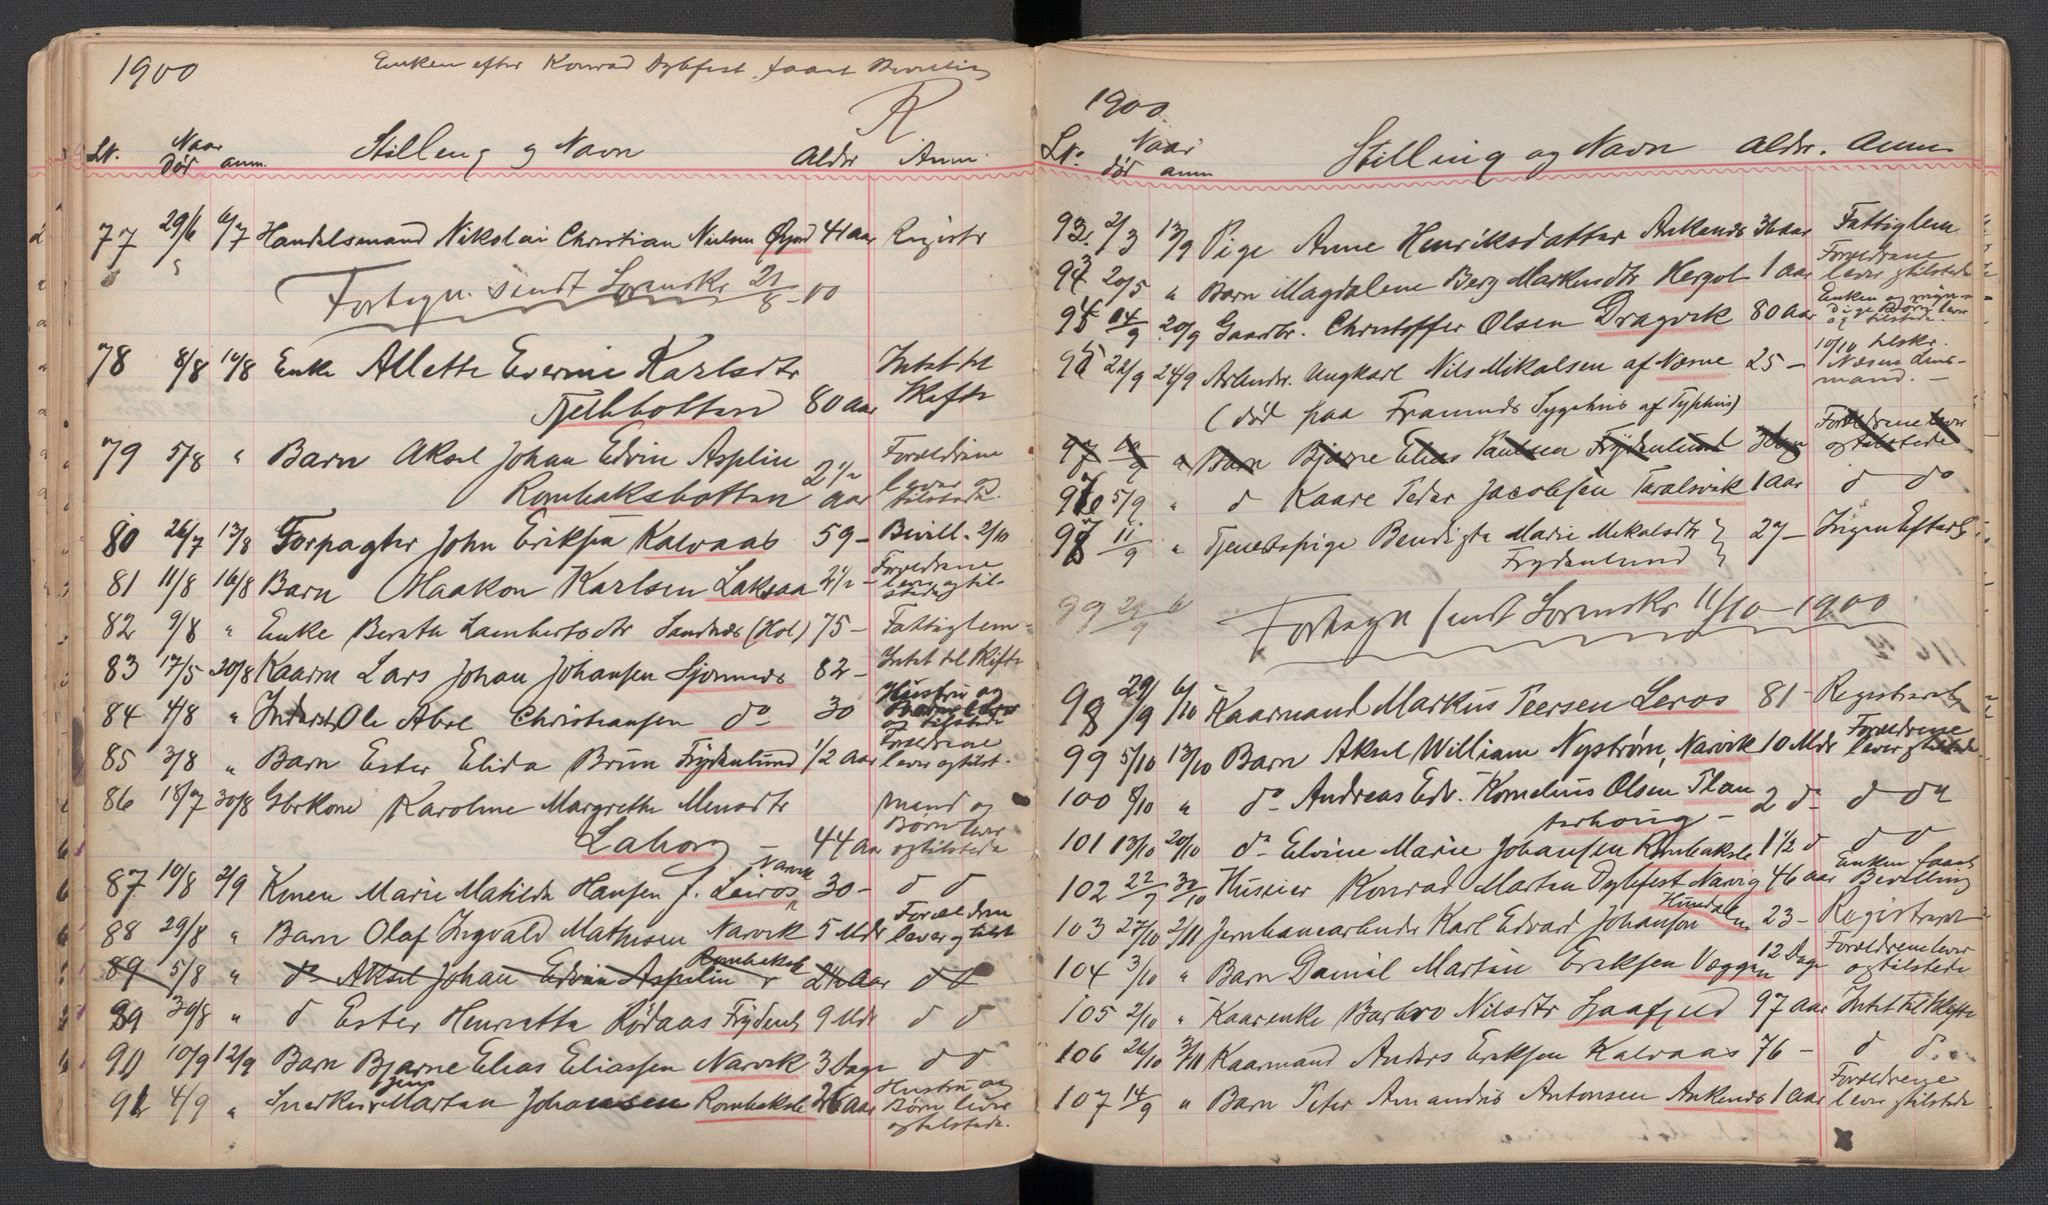 1900 Enken efter Konrad Dybfest faaet Bevilling
R
LN. Naar Stilling og Navn Alder Anm.
død anm.
77 29/6 6/7 Handelsmand Nikolai Christian Nielsen Øyjord 41 Aar Registr
Fortegn. sendt Sorenskr 21/8-00
78 8/8 10/8 Enke Allette Everine Karlsdtr Intet til
Fjeldbotten 80 Aar Skifte
79 5/8 " Barn Aksel Johan Edvin Asplin 2 1/2 Forældrene
Rombaksbotten Aar lever og
tilstede.
80 26/7 13/8 Forpagter John Eriksen Kalvaas 59 - Bevill. 2/10
81 11/8 16/8 Barn Haakon Karlsen Laksaa 2 1/2 - Forældrene
lever og til-
stede
82 9/8 " Enke Berath Lambertsdtr Sandnæs (Hol) 75 - Fattiglem -
83 17/5 20/8 Kaarm Lars Johan Johansen Sjomnæs 82 - Intet til Skifte
84 4/8 " Inderst Ole Abel Christiansen do 30 Hustru og
og tilstede
85 3/8 " Barn Ester Elida Brun Frydenlund 1/2 Aar Forældrene
lever og tilst.
86 18/7 30/8 Gbrkone Karoline Margrethe Monsdtr Mand og
Lahorg - 44 Aar Børn lever
og tilstede
87 10/8 2/9 Konen Marie Matilda Hansen f. Leiros Narvik 30 - d d
88 29/8 " Barn Olaf Ingvald Mathisen Narvik 5 Mdr Forældrene
lever og tilst
89 5/8 " do Aksel Johan Edvin Asplin Rombaksb 2 1/2 Aar d d
89 30/8 " d Ester Henriette Rødaas Frydenl 9 Mdr d d
90 10/9 12/9 Barn Bjarne Elias Eliassen Narvik 3 Dage d d
91 4/9 " Snedker Jens Martin Johansen Rombaksb 26 Aar Hustru og
Børn lever
og tilstede.
1900
LN. Naar Stilling og Navn Alder. Anm
død anm
92. 2/3 13/9 Pige Anne Henriksdatter Ankenes 36 Aar Fattiglem
93 20/5 " Barn Magdalene Berg Markusdtr Hergot 1 Aar Forældrene
lever og tilstede
94 14/9 20/9 Gaardbr. Christoffer Olsen Dragvik 80 Aar Enken og myn-
dige Børn lever
og tilstede.
95 22/9 24/9 Arbeider. Ungkarl Nils Mikalsen af Næsne 25 - 10/10 tilskr.
Næsne Lens-
mand. -
(død paa Framnæs Sygehus af Typhus)
97 10/9 " Barn Bjarne Elias Paulsen Frydenlund Forældrene lever
og tilstede
96 5/9 " d Kaare Peder Jacobsen Taralsvik 1 Aar d do
97 11/9 " Tjenestepige Bendigte Marie Mikalsdtr 27 - Ingen Efterl.
Frydenlund
99 29/9 6/ Fortegn sendt Sorenskr 11/10 - 1900
98 29/9 6/10 Kaarmand Markus Peersen Leros 81 - Registreret
99 5/10 13/10 Barn Aksel William Nystrøm, Narvik 10 Mdr Forældrene
lever og tilstede
100 8/10 " do Andreas Edv. Kornelius Olsen 2 d- d do
101 13/10 20/10 do Elvine Marie Johansen Rombaksb 1 1/2 d d d
102 22/9 30/10 Huseier Konrad Martin Dybfest Narvig 46 Aar Enken faaet
Bevilling
103 27/10 2/11 Jernbanearbeider Karl Edvard Johanson Hundalen 23 - Registreret
104 3/10 " Barn Daniel Martin Eriksen Væggen 12 Dage Forældrene lever
og tilstede
105 2/10 " Kaarenke Barbro Nilsdtr Sjaafjeld 97 Aar Intet til Skifte
106 26/10 3/11 Kaarmand Anders Eriksen Kalvaas 76 - d d.
107 14/9 " Barn Peter Amandus Antonsen Ankenes 1 Aar Forældrene
lever og tilstede